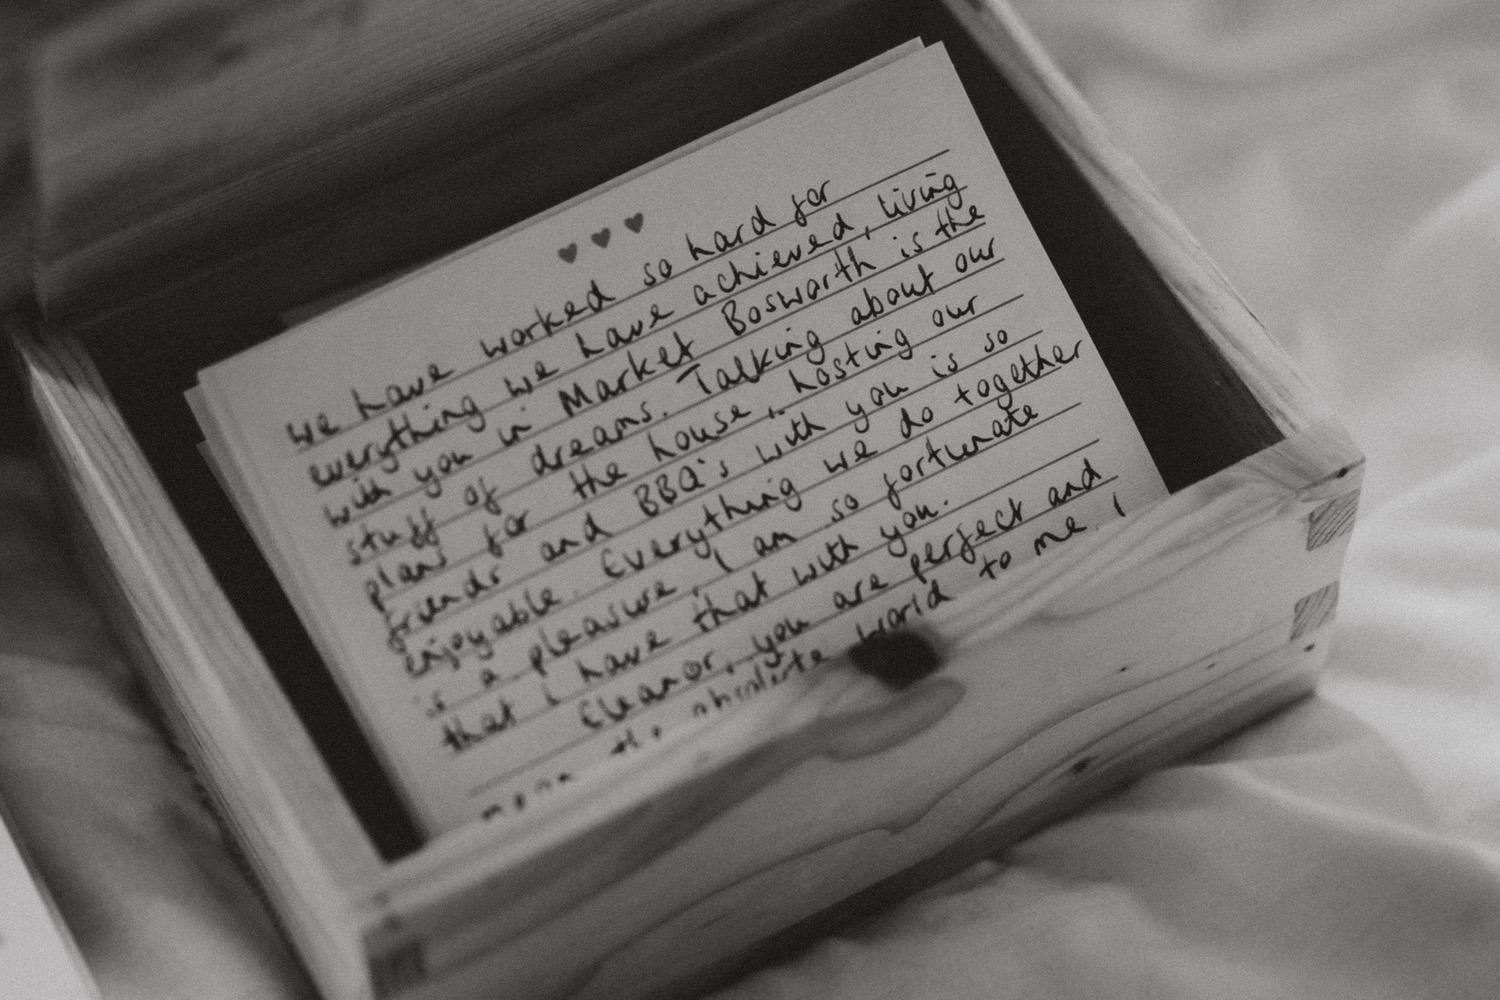 we have worked so hard for
everything we have achieved, living
with you in Market Bosworth is the
stuff of dreams. Talking about our
plans for the house, hosting our
friends and BBQ's with you is so
enjoyable. Everything we do together
is a pleasure, I am so fortunate
that I have that with you.
Eleanor, you are perfect and
mean the absolute world to me. I